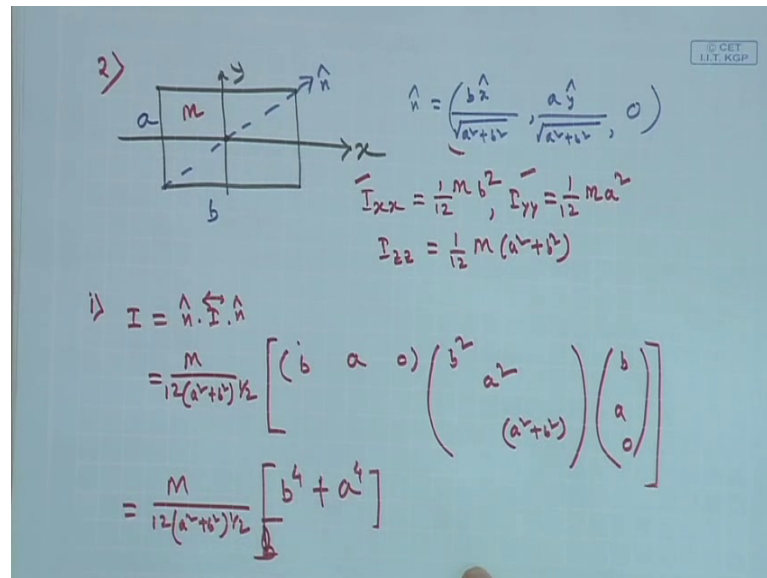 © CET
I.I.T. KGP
2)
y
n̂
a
m
x
b
n̂ = (bx̂/√(a²+b²), aŷ/√(a²+b²), 0)
I̅xx = 1/12 Mb², I̅yy = 1/12 Ma²
Izz = 1/12 M(a²+b²)
i) I = n̂.I⃡.n̂
= M/12(a²+b²)^1/2 [(b a 0) (b² a² (a²+b²)) (b a 0)]
= M/12(a²+b²)^1/2 [b⁴ + a⁴]